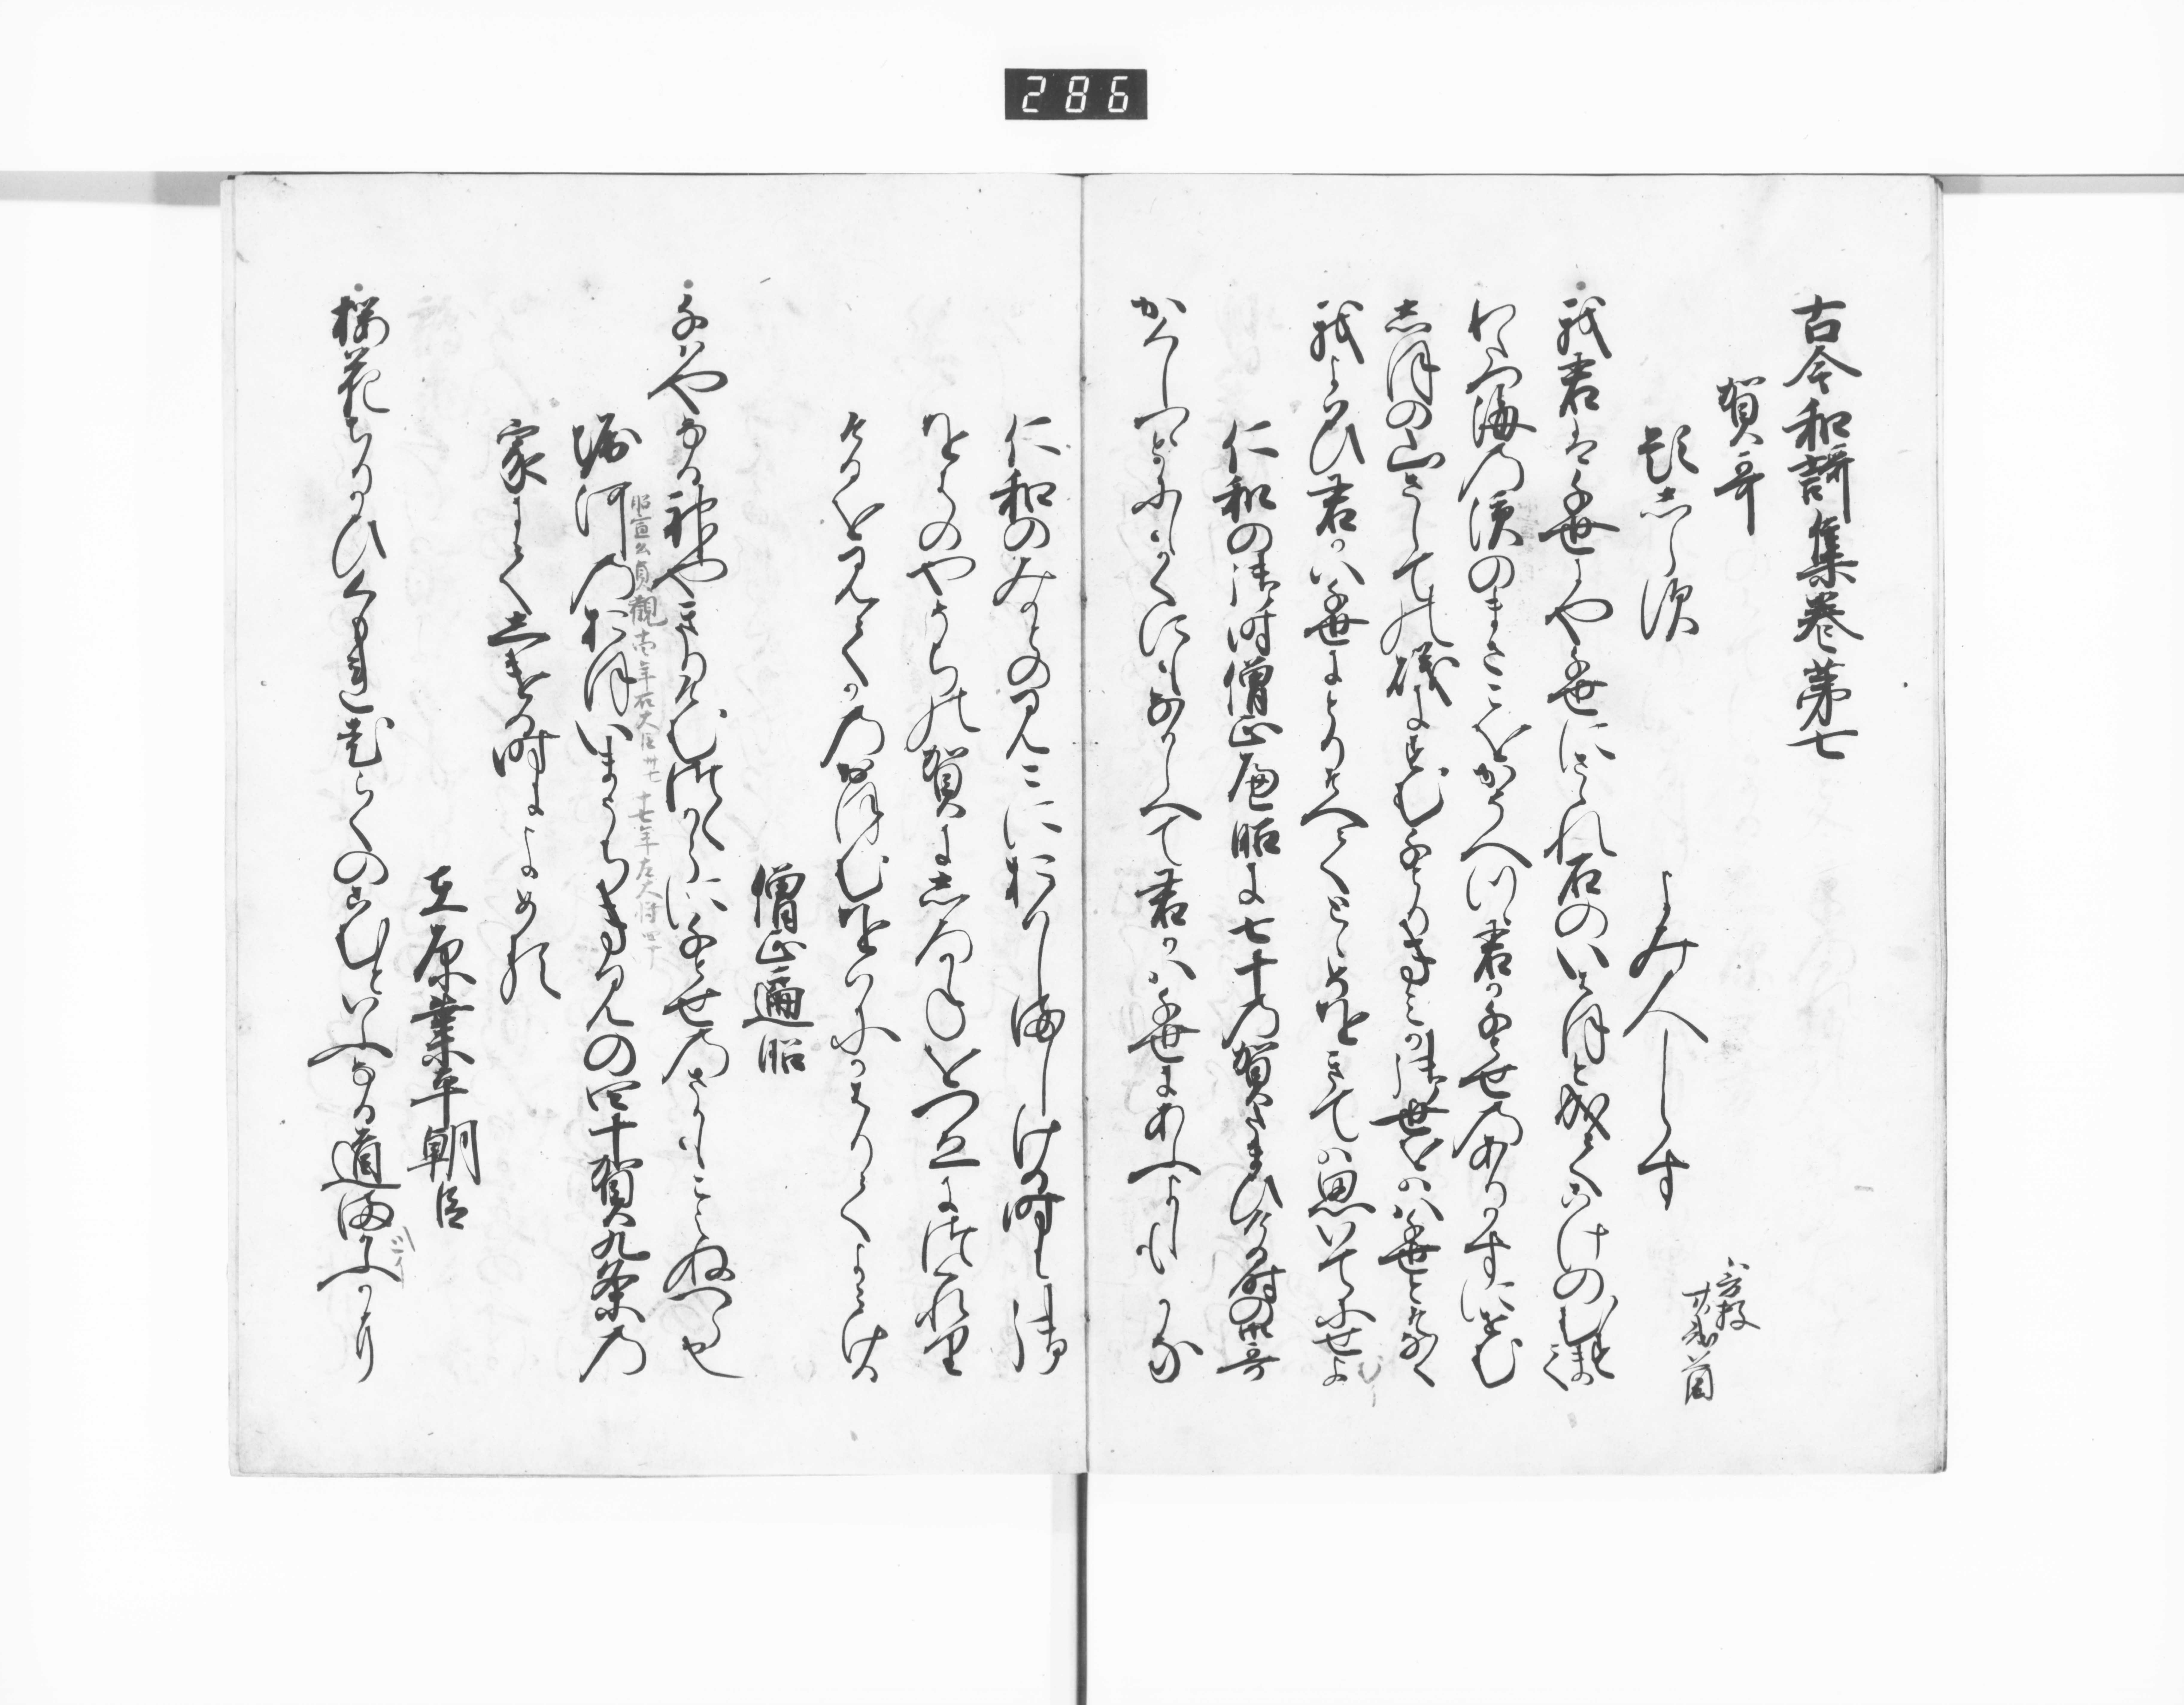 286
古今和謌集巻第七
賀哥
題しらす
よみ人しらす
我君は千世にや千世にさゝれ石のいはほと成てこけのむすまて
わたつ海の濱のまさこをかそへつゝ君か千とせのありかすにせむ
しほの山さしての磯にすむ千とり君か御世をはやちよとそなく
我よはひ君かやちよにとりそへてとゝめをきては思いてにせよ
仁和の御時僧正遍昭に七十の賀たまひける時の御哥
かくしつゝとにもかくにもなからへて君かやちよにあふよしもかな
仁和のみかとのみこにおはしましける時に御
をはのやそちの賀にしろかねをつゑにつくれり
けるを見てかの御をはにかはりてよみける
僧正遍昭
千はやふる神やきりけむつくからに千とせのさかもこえぬへら也
昭宣公 貞観十四年右大臣 十七年左大将 四十
堀河のおほいまうちきみの四十賀九条の
家にてしける時によめる
在原業平朝臣
桜花ちりかひくもれ老らくのこむといふなる道まかふかに